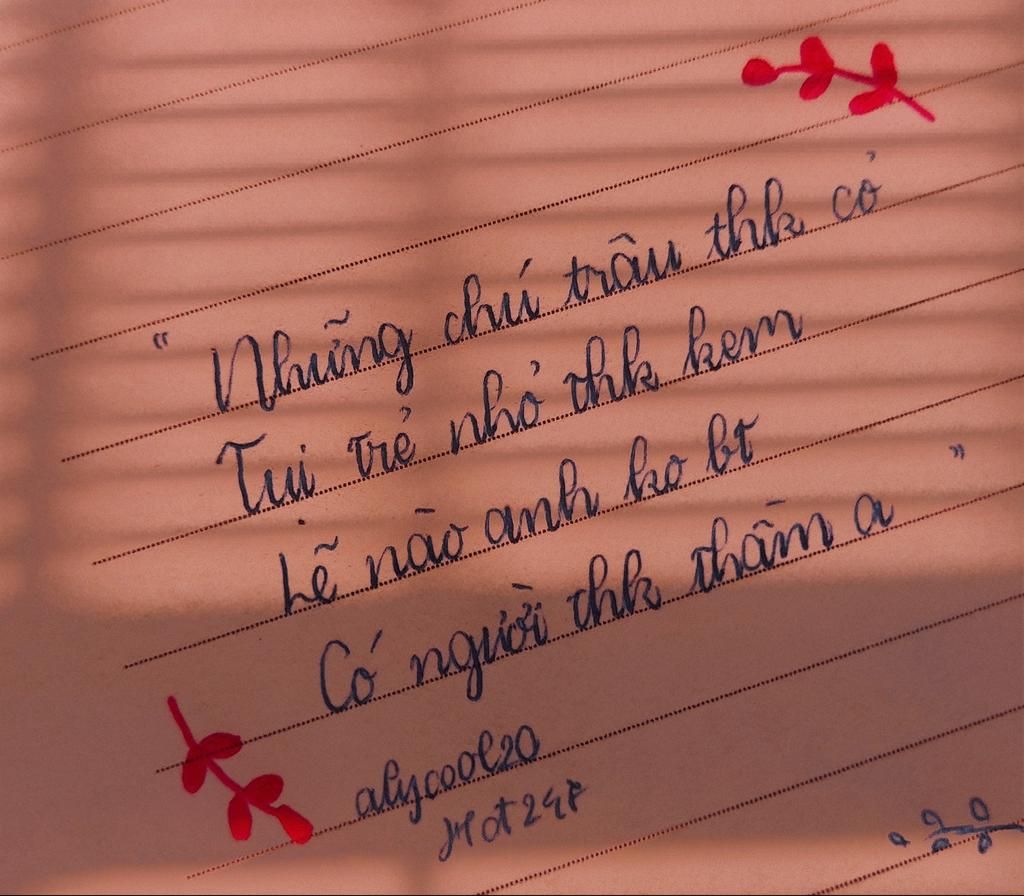 “ Những chú trâu thk cỏ
Tui trẻ nhỏ thk kem
Lẽ nào anh ko bt
Có người thk thầm a ”
alycool20
Hot247